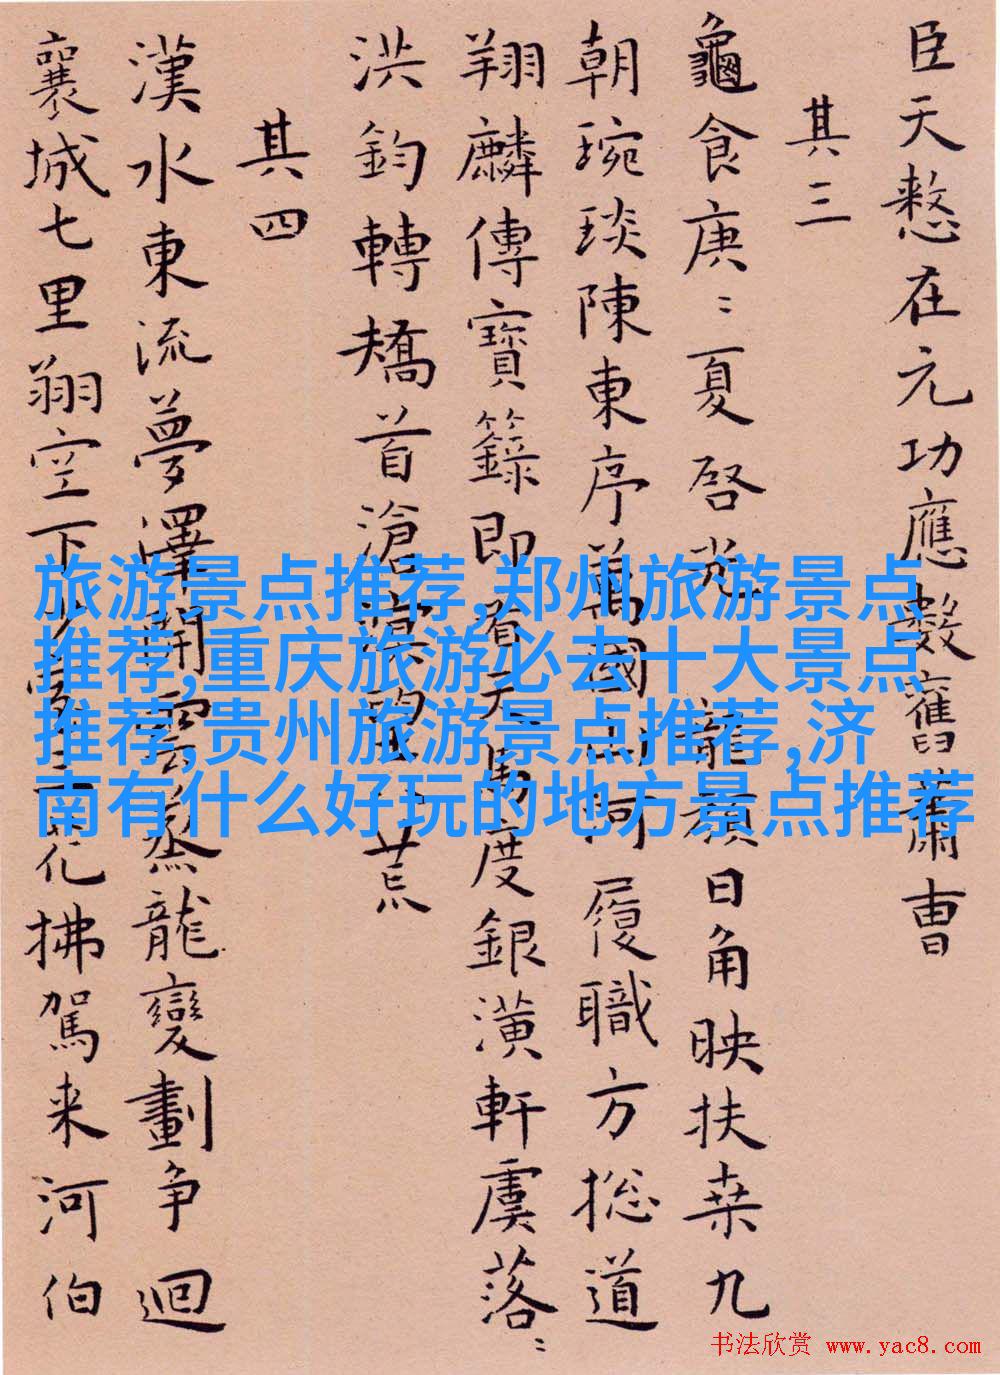 臣天憗在元功應數舊蕭曹
其三
龜食庚〻夏啓光龍顏日角映扶桒九
朝琬琰陳東序萬國山河履職方捴道
翔麟傳寶籙即看天馬度銀潢軒虞落〻
洪鈞轉矯首滄溟望八荒
其四
漢水東流夢澤開雲蒸龍變劃争迴
襄城七里翔空下花拂駕来河伯
旅游景点推荐,郑州旅游景点
推荐,重庆旅游必去十大景点
推荐,贵州旅游景点推荐,济
南有什么好玩的地方景点推荐
书法欣赏 www.yac8.com